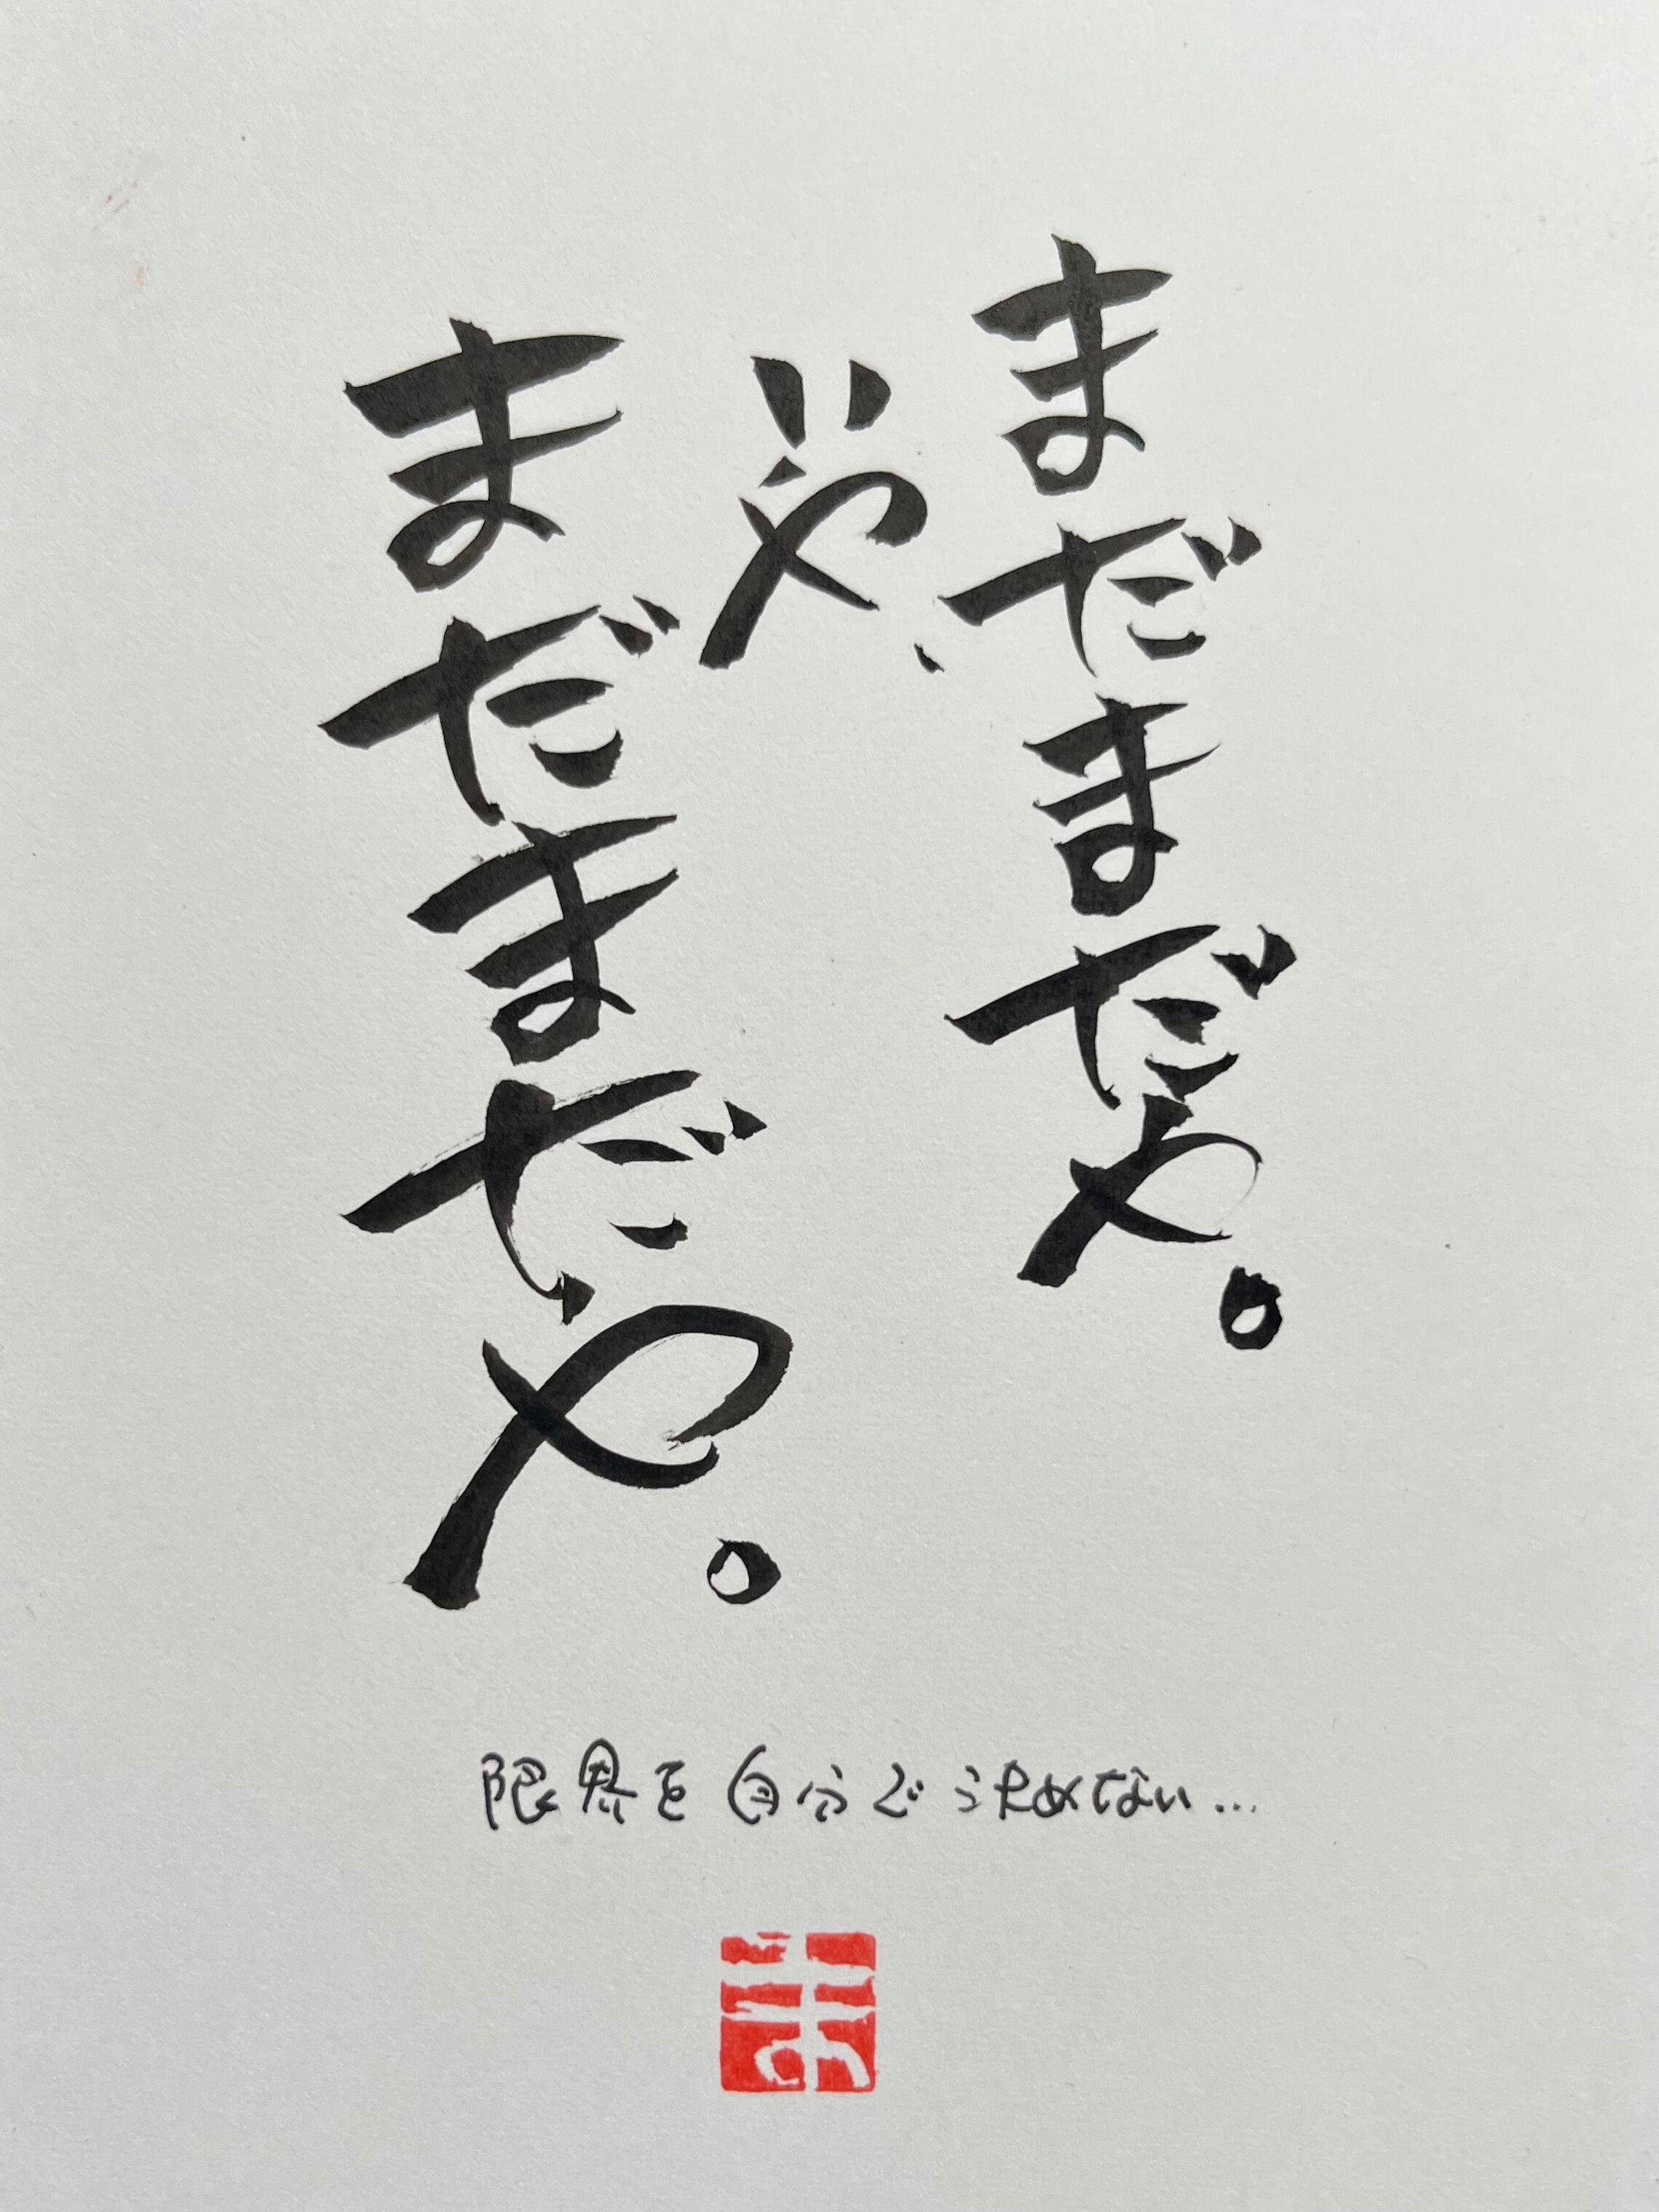 まだまだや。
いや、
まだまだや。
限界を自分で決めない…
ま